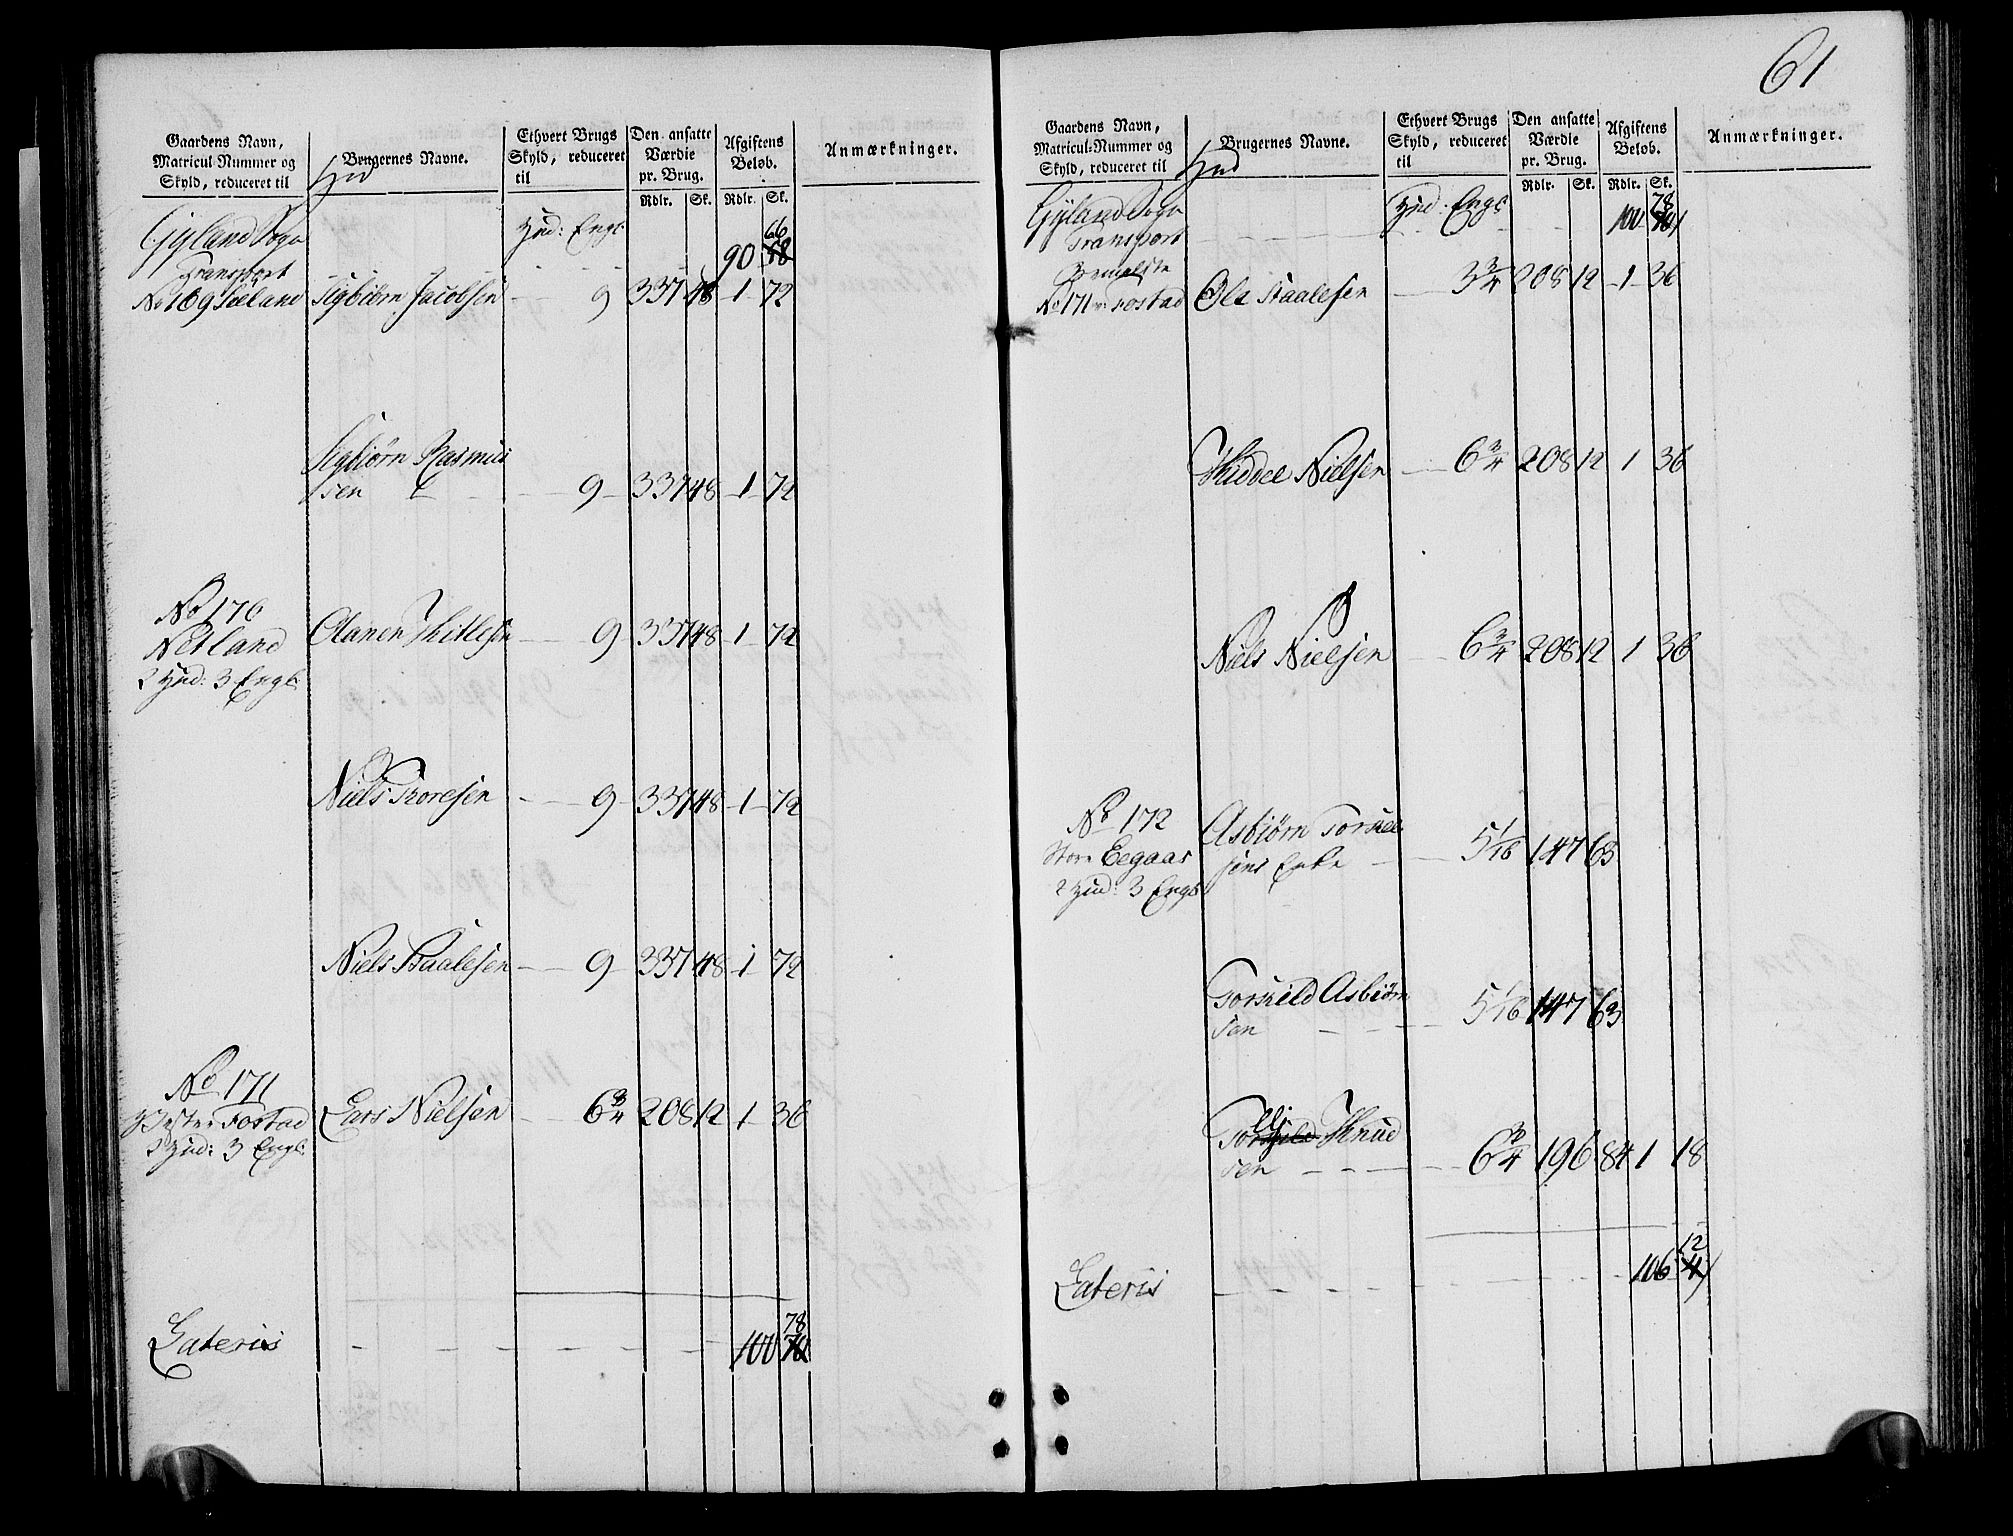 Gaardens Navn, Matricul-Nummer og Skyld, reduceret til Hud
Brugernes Navne.
Ethvert Brugs Skyld, reduceret til
Den ansatte Værdie pr. Brug.
Afgiftens Beløb.
Anmærkninger.
Rdlr. Sk. Rdlr. Sk.
Gyland Sogn Hud: Engl. 66
Transport 90 58
No 169 Søeland Sigbiörn Jacobsen 9 337 48 1 72
Sigbiörn Rasmus
sen 9 337 48 1 72
No 170
Netland Aanen Kitlesen 9 337 48 1 72
2 Hud: 3 Engl:
Niels Toresen 9 337 48 1 72
Niels Staalesen 9 337 48 1 72
No 171
Vester Fostad Lars Nielsen 6 3/4 208 12 1 36
2 Hud: 3 Engl:
78
Lateris 100
61
Gaardens Navn, Matricul-Nummer og Skyld, reduceret til Hud
Brugernes Navne.
Ethvert Brugs Skyld, reduceret til
Den ansatte Værdie pr. Brug.
Afgiftens Beløb.
Anmærkninger.
Rdlr. Sk. Rdlr. Sk.
Gyland Sogn Hud: Engl: 78
Transport 100
No 171 Fostad Ole Staalesen 3/4 208 12 1 36
Kiddel Nielsen 6 3/4 208 12 1 36
Niels Nielsen 6 3/4 208 12 1 36
No 172 Asbiörn Torkel
Store Eegaas sens Enke 5 1/16 147 63
2 Hud: 3 Engl:
Torkild Asbiörn
sen 5 1/16 147 63
Torkild Knud
sen 6 3/4 196 84 1 18
12
Lateris 106 4